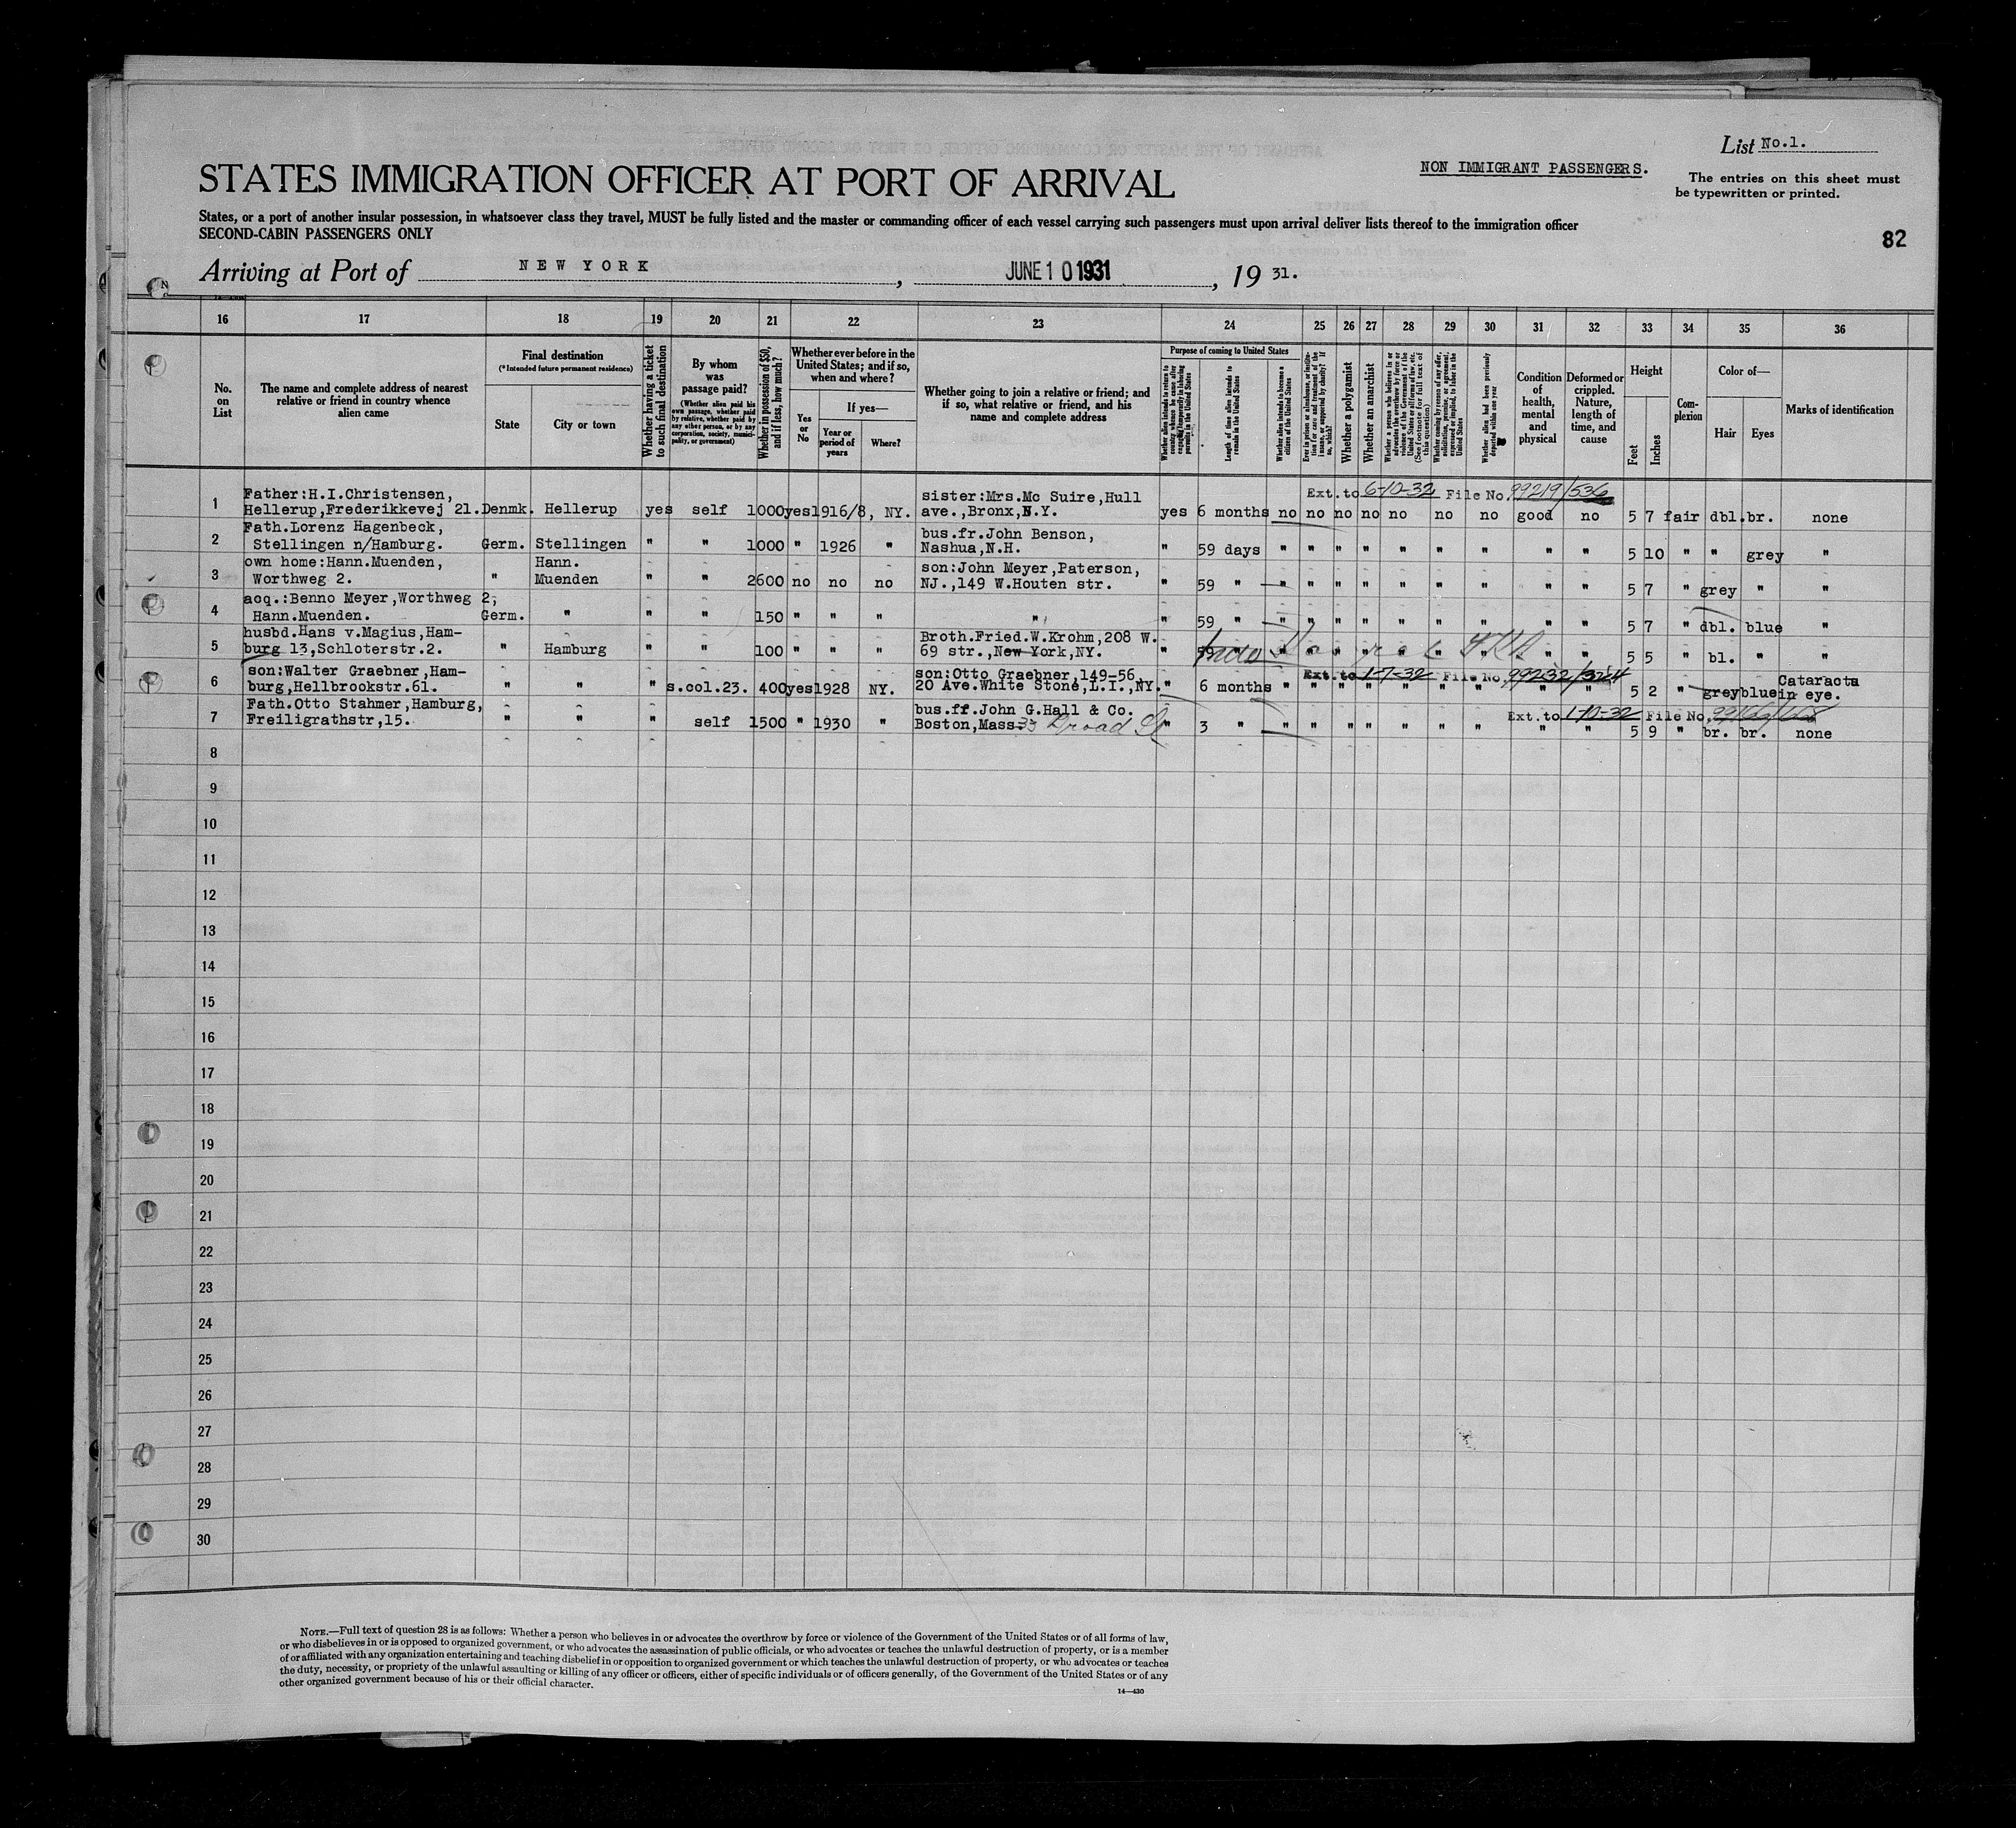 List No.1.
NON IMMIGRANT PASSENGERS.
The entries on this sheet must
be typewritten or printed.
STATES IMMIGRATION OFFICER AT PORT OF ARRIVAL
States, or a port of another insular possession, in whatsoever class they travel, MUST be fully listed and the master or commanding officer of each vessel carrying such passengers must upon arrival deliver lists thereof to the immigration officer
SECOND-CABIN PASSENGERS ONLY
82
Arriving at Port of NEW YORK, JUNE 10 1931, 19 31.
16 17 18 19 20 21 22 23 24 25 26 27 28 29 30 31 32 33 34 35 36
No. on List
The name and complete address of nearest relative or friend in country whence alien came
Final destination
(*Intended future permanent residence)
State
City or town
Whether having a ticket to such final destination
By whom was passage paid?
(Whether alien paid his own passage, whether paid by relative, whether paid by any other person, or by any corporation, society, municipality, or government)
Whether in possession of $50, and if less, how much?
Whether ever before in the United States; and if so, when and where?
Yes or No
If yes—
Year or period of years
Where?
Whether going to join a relative or friend; and if so, what relative or friend, and his name and complete address
Purpose of coming to United States
Length of time alien intends to remain in the United States
Whether alien intends to become a citizen of the United States
Whether a polygamist
Whether an anarchist
Condition of health, mental and physical
Deformed or crippled. Nature, length of time, and cause
Height
Feet
Inches
Complexion
Color of—
Hair
Eyes
Marks of identification
Ext. to 6-10-32 File No. 99219/536
1 Father:H.I.Christensen, sister:Mrs.Mc Suire,Hull
Hellerup,Frederikkevej 21. Denmk. Hellerup yes self 1000 yes 1916/8, NY. ave.,Bronx,N.Y. yes 6 months no no no no no no no good no 5 7 fair dbl. br. none
2 Fath.Lorenz Hagenbeck, bus.fr.John Benson,
Stellingen n/Hamburg. Germ. Stellingen " " 1000 " 1926 " Nashua,N.H. " 59 days " " " " " " " " " 5 10 " " grey "
3 own home:Hann.Muenden, Hann. son:John Meyer,Paterson,
Worthweg 2. " Muenden " " 2600 no no no NJ.,149 W.Houten str. " 59 " " " " " " " " " " 5 7 " grey " "
4 acq.:Benno Meyer,Worthweg 2,
Hann.Muenden. Germ. " " " 150 " " " " " 59 " " " " " " " " " " 5 7 " dbl. blue "
5 husbd.Hans v.Magius,Ham- Broth.Fried.W.Krohm,208 W.
burg 13,Schloterstr.2. " Hamburg " " 100 " " " 69 str.,New York,NY. " 5 5 " bl. " "
Ext. to 1-7-32 File No. 99232/324
6 son:Walter Graebner,Ham- son:Otto Graebner,149-56, Cataracta
burg,Hellbrookstr.61. " " " s.col.23. 400 yes 1928 NY. 20 Ave.White Stone,L.I.,NY. " 6 months " " " " " " " " " 5 2 " grey blue in eye.
Ext. to 1-10-32 File No.
7 Fath.Otto Stahmer,Hamburg, bus.ff.John G.Hall & Co.
Freiligrathstr,15. " " " self 1500 " 1930 " Boston,Mass. Broad St " 3 " " " " " " " " " " 5 9 " br. br. none
8
9
10
11
12
13
14
15
16
17
18
19
20
21
22
23
24
25
26
27
28
29
30
NOTE.—Full text of question 28 is as follows: Whether a person who believes in or advocates the overthrow by force or violence of the Government of the United States or of all forms of law,
or who disbelieves in or is opposed to organized government, or who advocates the assassination of public officials, or who advocates or teaches the unlawful destruction of property, or is a member
of or affiliated with any organization entertaining and teaching disbelief in or opposition to organized government or which teaches the unlawful destruction of property, or who advocates or teaches
the duty, necessity, or propriety of the unlawful assaulting or killing of any officer or officers, either of specific individuals or of officers generally, of the Government of the United States or of any
other organized government because of his or their official character.
14—430